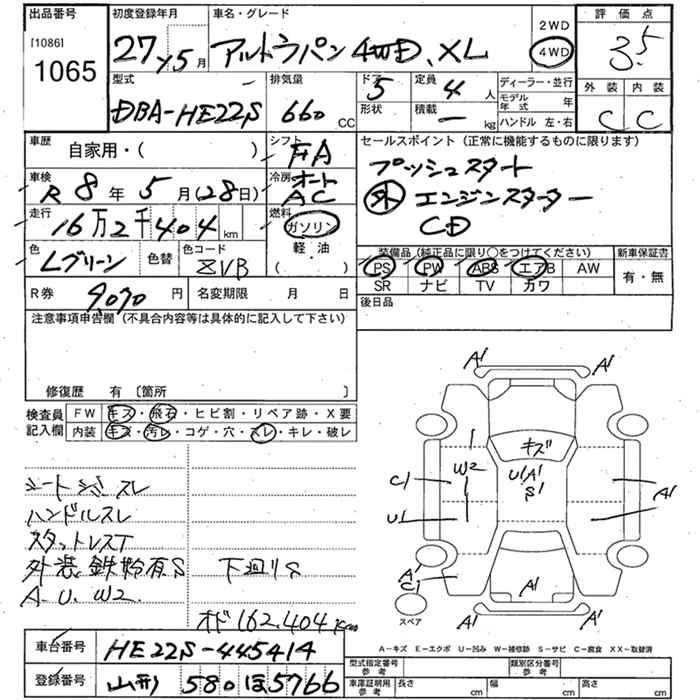 出品番号
[1086]
1065
初度登録年月
27 5月
車名・グレード
アルトラパン 4WD、XL
2WD
4WD
評価点
3.5
外装 内装
C C
型式
DBA-HE22S
排気量
660 CC
ドア
5
形状
定員
4 人
積載
ー kg
ディーラー・並行
モデル年式 年
ハンドル 左・右
車歴
自家用・( )
シフト
FA
車検
R 8年 5月(28日)
冷房
オート
AC
走行
16万2千404 km
燃料
ガソリン
軽・油
( )
色
Lグリーン 色替
色コード
ZVB
R券 9070 円
名変期限 月 日
セールスポイント(正常に機能するものに限ります)
プッシュスタート
外 エンジンスターター
CD
装備品(純正品に限り○をつけてください)
PS PW ABS エアB AW
SR ナビ TV カワ
新車保証書
有・無
後日品
注意事項申告欄(不具合内容等は具体的に記入して下さい)
修復歴 有〔箇所 〕
検査員記入欄
FW キズ・飛石・ヒビ割・リペア跡・X要
内装 キズ・汚レ・コゲ・穴・スレ・キレ・破レ
シートシミ スレ
ハンドルスレ
スタットレスT
外装鉄粉有S 下廻りS
A.U.W2
オド162.404km
A1 A1
キズ
W2 U1A1
S1
C1
U1
A1
A1
C1
A1
A1
スペア
車台番号 HE22S-445414
登録番号 山形 580 ほ5766
A-キズ E-エクボ U-凹み W-補修跡 S-サビ C-腐食 XX-取替済
型式指定番号 参考
類別区分番号 参考
車庫証明用 参考
長さ cm 幅 cm 高さ cm